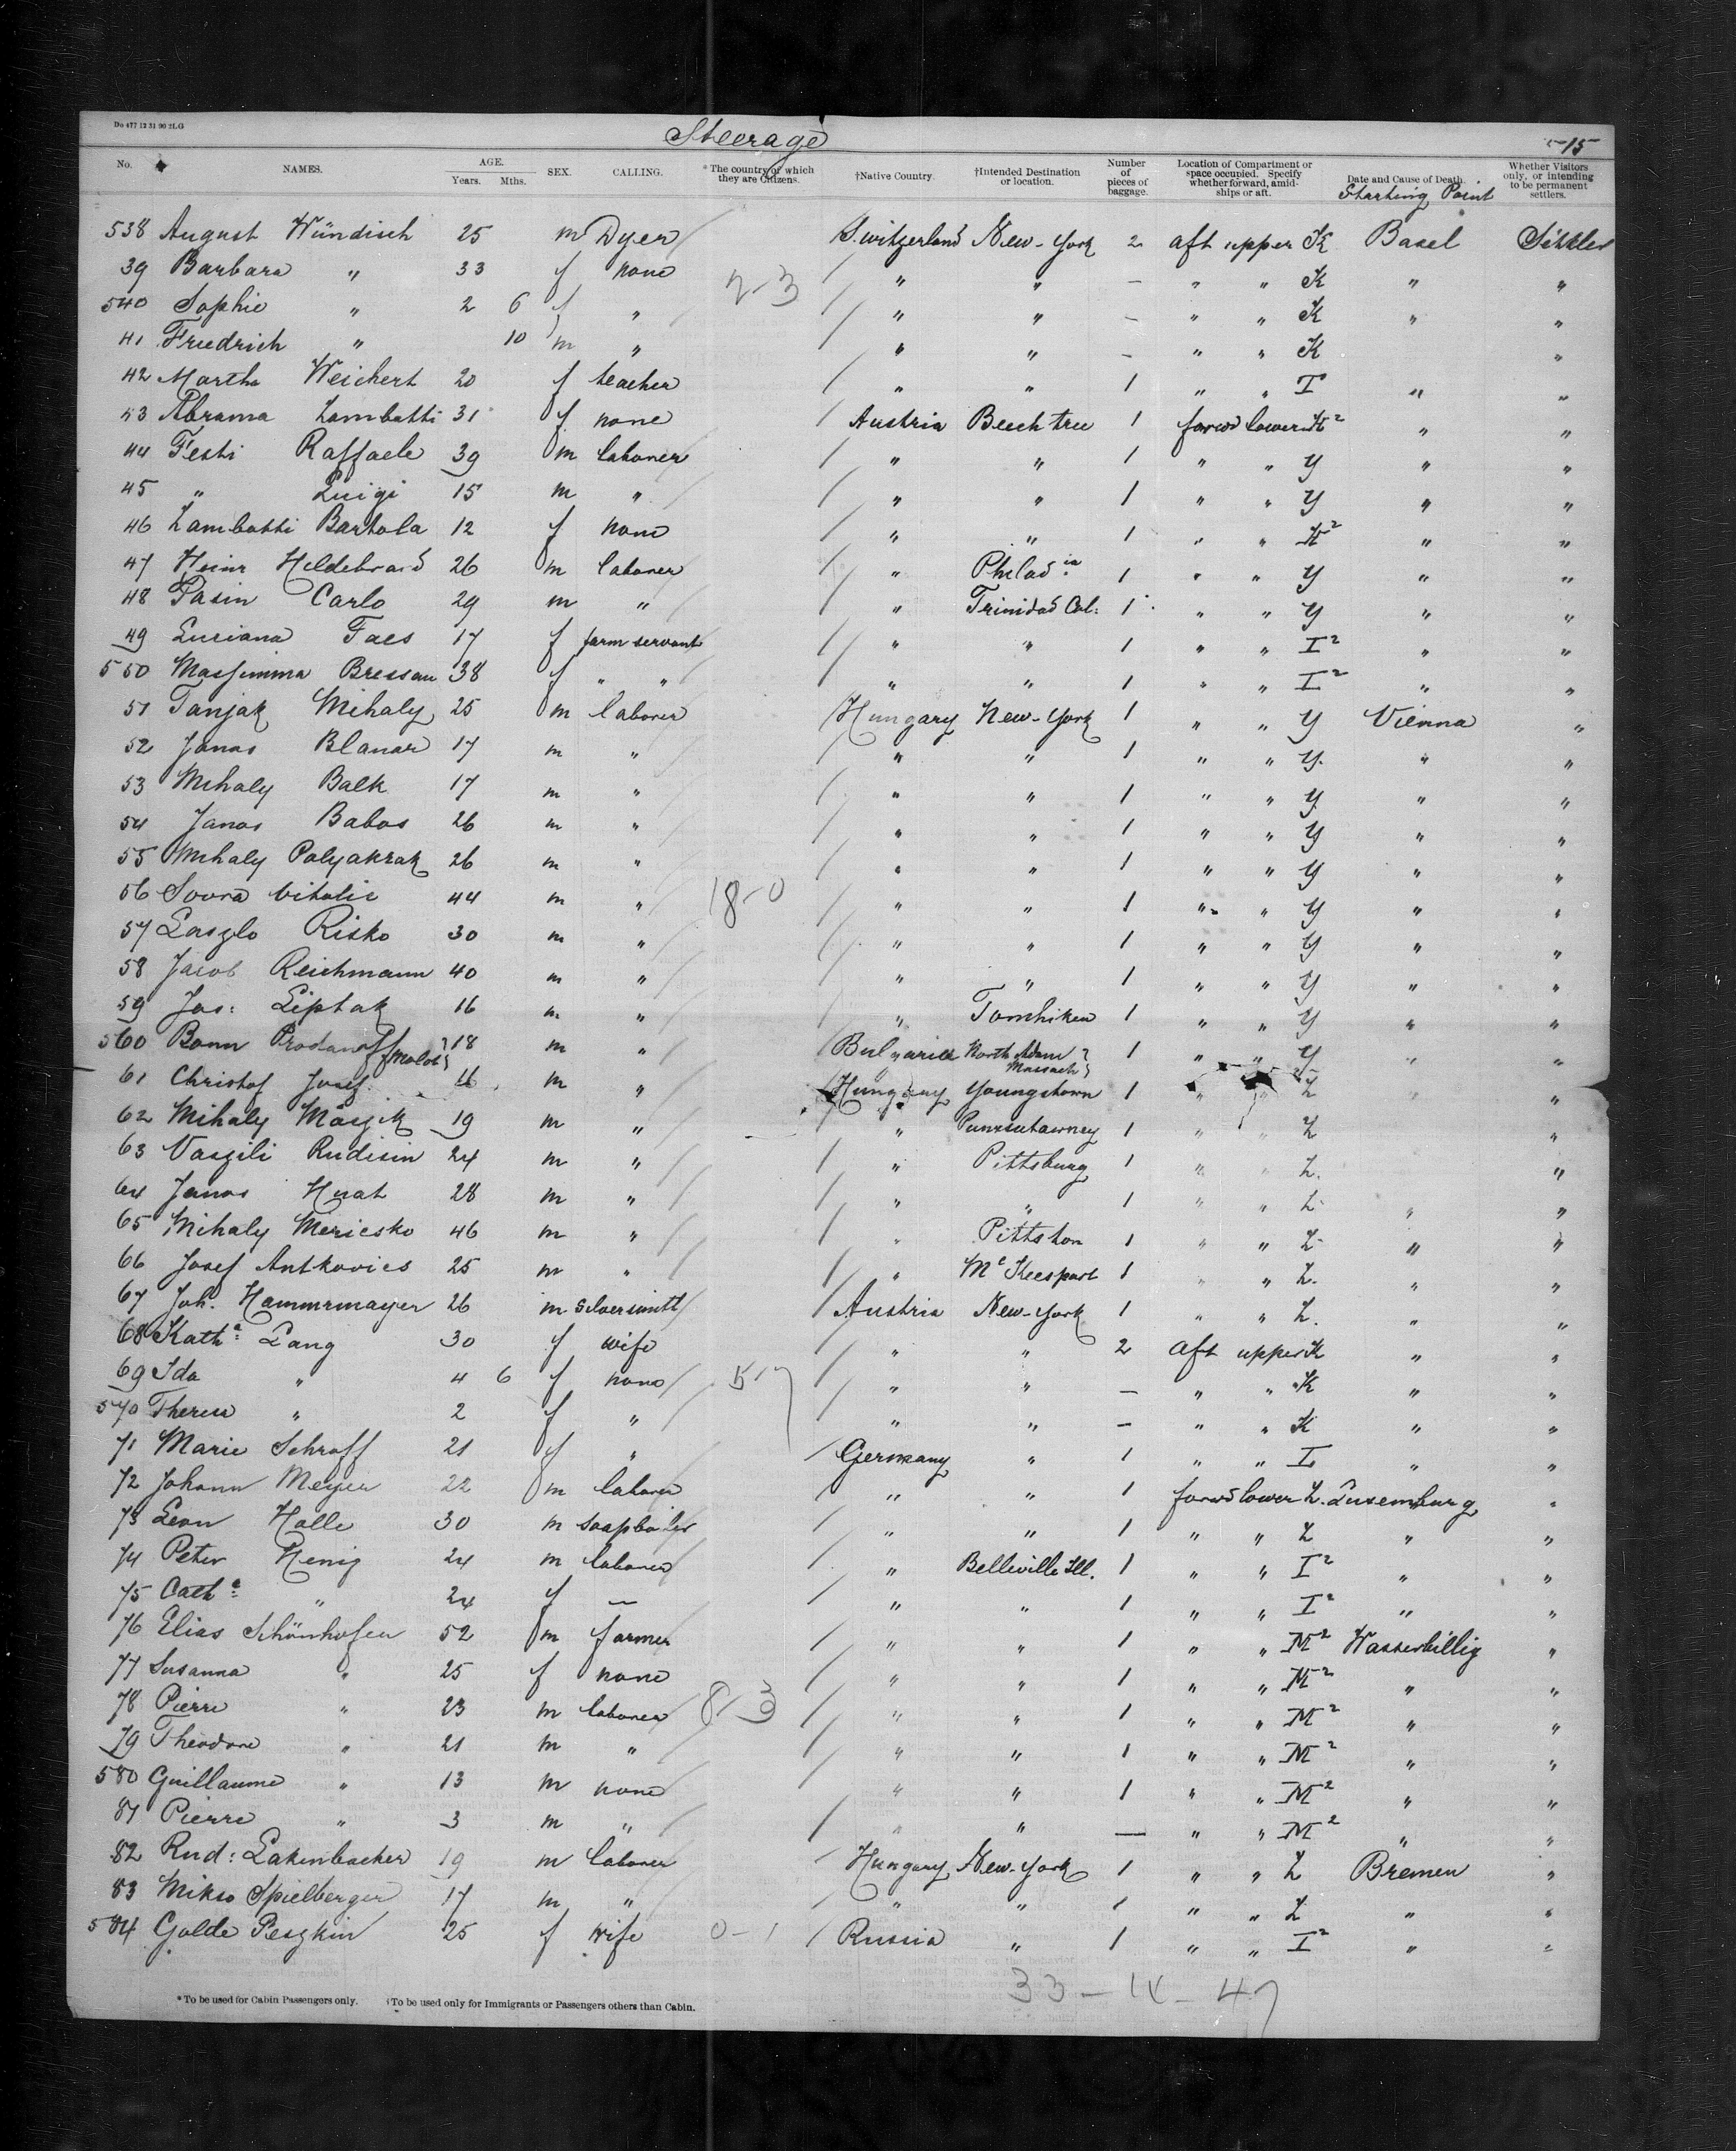 Do 477 12 31 90 2LG
Steerage
15
No. NAMES. AGE. Years. Mths. SEX. CALLING. *The country of which they are Citizens. †Native Country. †Intended Destination or location. Number of pieces of baggage. Location of Compartment or space occupied. Specify whether forward, amidships or aft. Date and Cause of Death. Whether Visitors only, or intending to be permanent settlers.
Starting Point
538 August Wündisch 25 m Dyer Switzerland New-York 2 aft upper K Basel Settler
39 Barbara " 33 f none " " - " " K " "
2-3
540 Sophie " 2 6 f " " " - " " K " "
41 Friedrich " 10 m " " " - " " K "
42 Martha Weichert 20 f teacher " " 1 " " I " "
43 Abrama Zambotti 31 f none Austria Beech tree 1 forwd lower K2 " "
44 Festi Raffaele 39 m laborer " " 1 " " Y " "
45 " Luigi 15 m " " " 1 " " Y " "
46 Zambotti Bartola 12 f none " " 1 " " K2 " "
47 Heinr Hildebrand 26 m laborer " Philadia 1 " " Y " "
48 Pasin Carlo 29 m " " Trinidad Col. 1 " " Y " "
49 Luciana Faes 17 f farm servant " " 1 " " I2 " "
550 Massimma Bressan 38 f " " " " 1 " " I2 " "
51 Tanjak Mihaly 25 m laborer Hungary New-York 1 " " Y Vienna "
52 Janos Blanar 17 m " " " 1 " " Y " "
53 Mihaly Balk 17 m " " " 1 " " Y " "
54 Janos Babos 26 m " " " 1 " " Y " "
55 Mihaly Polyakrak 26 m " " " 1 " " Y " "
56 Soora Vitalie 44 m " 18-0 " " 1 " " Y " "
57 Laszlo Risko 30 m " " " 1 " " Y " "
58 Jacob Reichmann 40 m " " " 1 " " Y " "
59 Jos: Liptak 16 m " " Tomhiken 1 " " Y " "
560 Bonn Prodanoff 18 m " Bulgaria North Adam Massach 1 " " Y " "
61 Christof Josef 16 m " Hungary Youngstown 1 " " Z " "
62 Mihaly 19 m " " Punxsutawney 1 " " Z "
63 Vaszili Rudisin 24 m " " Pittsburg 1 " " Z "
64 Janos Huat 28 m " " " 1 " " Z " "
65 Mihaly Mericsko 46 m " " Pittston 1 " " Z " "
66 Josef Antkovics 25 m " " Mc Keesport 1 " " Z " "
67 Joh. Hammrmayer 26 m silversmith Austria New-York 1 " " Z " "
68 Katha Lang 30 f wife " " 2 aft upper K " "
69 Ida " 4 6 f none " " - " " K " "
570 Theresa " 2 f " " " - " " K " "
71 Marie Schroff 21 f " Germany " 1 " " I " "
72 Johann Meyer 22 m laborer " " 1 forwd lower Z Luxemburg "
73 Leon Halle 30 m soapboiler " " 1 " " Z " "
74 Peter Henig 24 m laborer " Belleville Ill. 1 " " I2 " "
75 Catha " 24 f - " " 1 " " I2 " "
76 Elias Schönhofen 52 m farmer " " 1 " " M2 Wasserbillig "
77 Susanna " 25 f none " " 1 " " M2 " "
78 Pierre " 23 m laborer 8-3 " " 1 " " M2 " "
79 Theodore " 21 m " " " 1 " " M2 " "
580 Guillaume " 13 m none " " 1 " " M2 " "
81 Pierre " 3 m " " " - " " M2 " "
82 Rud: Lakenbacher 19 m laborer Hungary New-York 1 " " Z Bremen "
83 Mikso Spielberger 17 m " " " 1 " " Z " "
584 Golde Peszkin 25 f wife 0-1 Russia " 1 " " I2 " "
33-14-47
*To be used for Cabin Passengers only. †To be used only for Immigrants or Passengers others than Cabin.